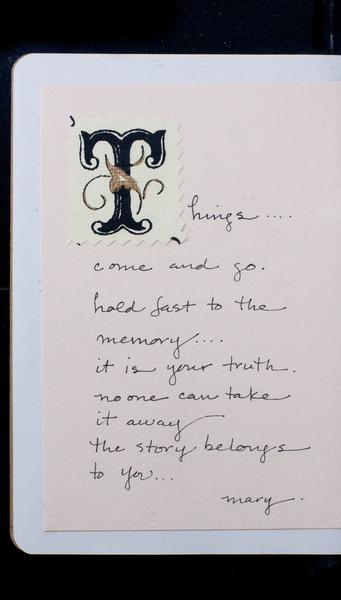 Things....
come and go.
hold fast to the
memory....
it is your truth.
no one can take
it away
the story belongs
to you...
mary.